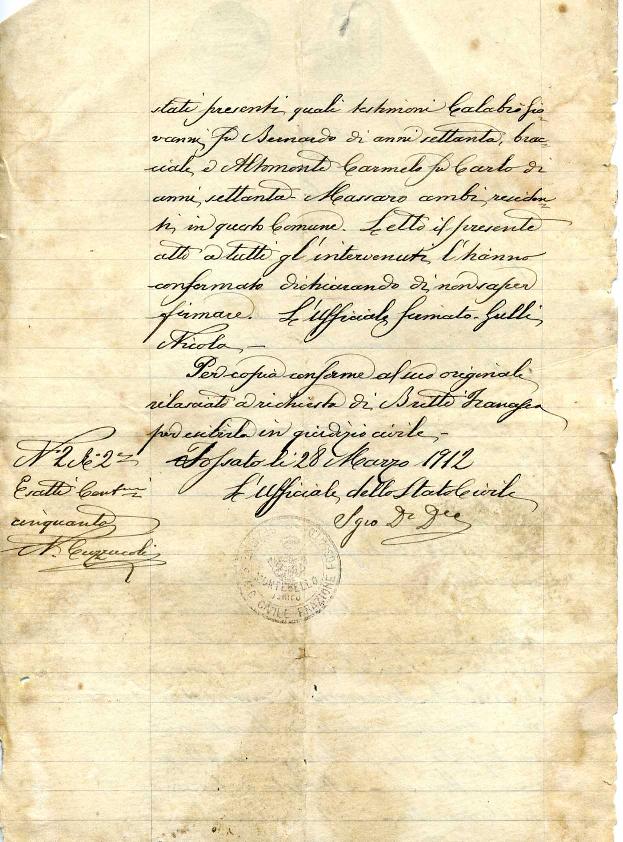 stati presenti quali testimoni Calabrò Gio-
vanni fu Bernardo di anni settanta, brac-
ciale, e Altomonte Carmelo fu Carlo di
anni settanta Massaro ambi residen-
ti in questo Comune. Letto il presente
atto a tutti gl'intervenuti, l'hanno
confermato dichiarando di non saper
firmare. L'Ufficiale firmato-Gulli
Nicola,-
Per copia conforme al suo originale
rilasciato a richiesta di Francesca
per esibirla in giudizio civile,-
Fossato li 28 Marzo 1912
L'Ufficiale dello Stato Civile
N. 2
Esatti Cent.mi
cinquanta
N.
MONTEBELLO
JONICO
STATO CIVILE FRAZIONE FOSSATO